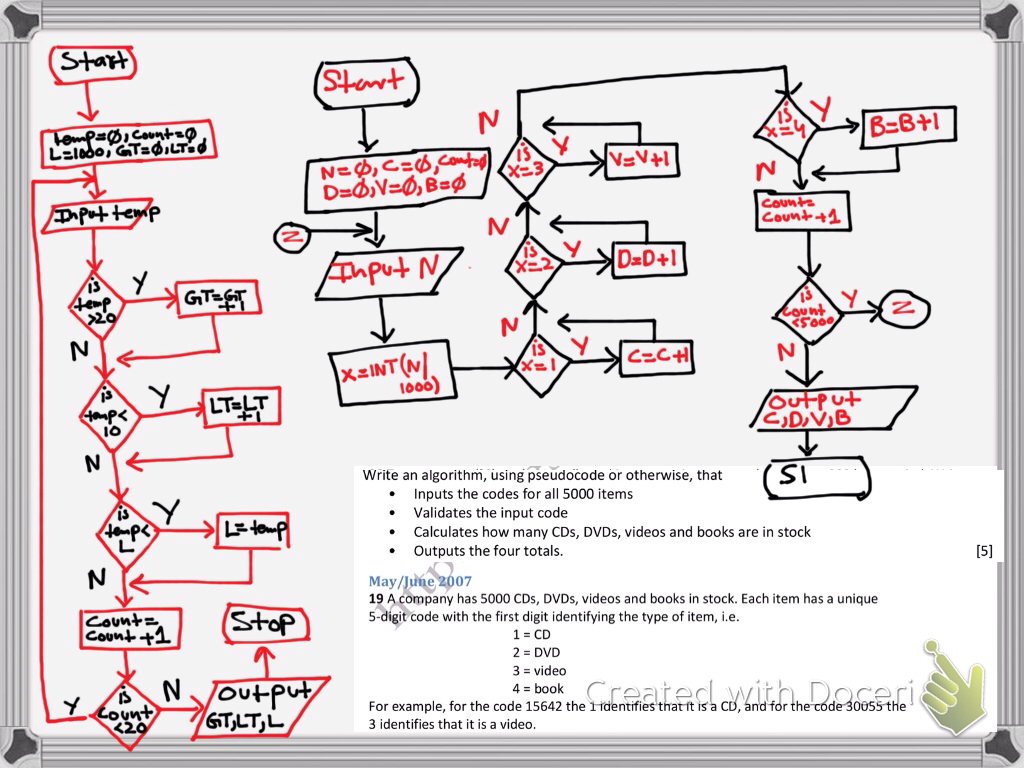 Start
temp=Ø, Count=Ø,
L=1000, GT=Ø, LT=Ø
Input temp
is
temp
>20
Y
GT=GT
+1
N
is
temp<
10
Y
LT=LT
+1
N
is
temp<
L
Y
L=temp
N
Count=
Count+1
is
Count
<20
Y
N
Output
GT,LT,L
Stop
Start
N=Ø, C=Ø, Count=Ø
D=Ø, V=Ø, B=Ø
Z
Input N
X=INT(N/
1000)
is
X=1
Y
C=C+1
N
is
X=2
Y
D=D+1
N
is
X=3
Y
V=V+1
N
is
X=4
Y
B=B+1
N
Count=
Count+1
is
Count
<5000
Y
Z
N
Output
C,D,V,B
St
Write an algorithm, using pseudocode or otherwise, that
• Inputs the codes for all 5000 items
• Validates the input code
• Calculates how many CDs, DVDs, videos and books are in stock
• Outputs the four totals. [5]
May/June 2007
19 A company has 5000 CDs, DVDs, videos and books in stock. Each item has a unique
5-digit code with the first digit identifying the type of item, i.e.
1 = CD
2 = DVD
3 = video
4 = book
For example, for the code 15642 the 1 identifies that it is a CD, and for the code 30055 the
3 identifies that it is a video.
http
Created with Doceri